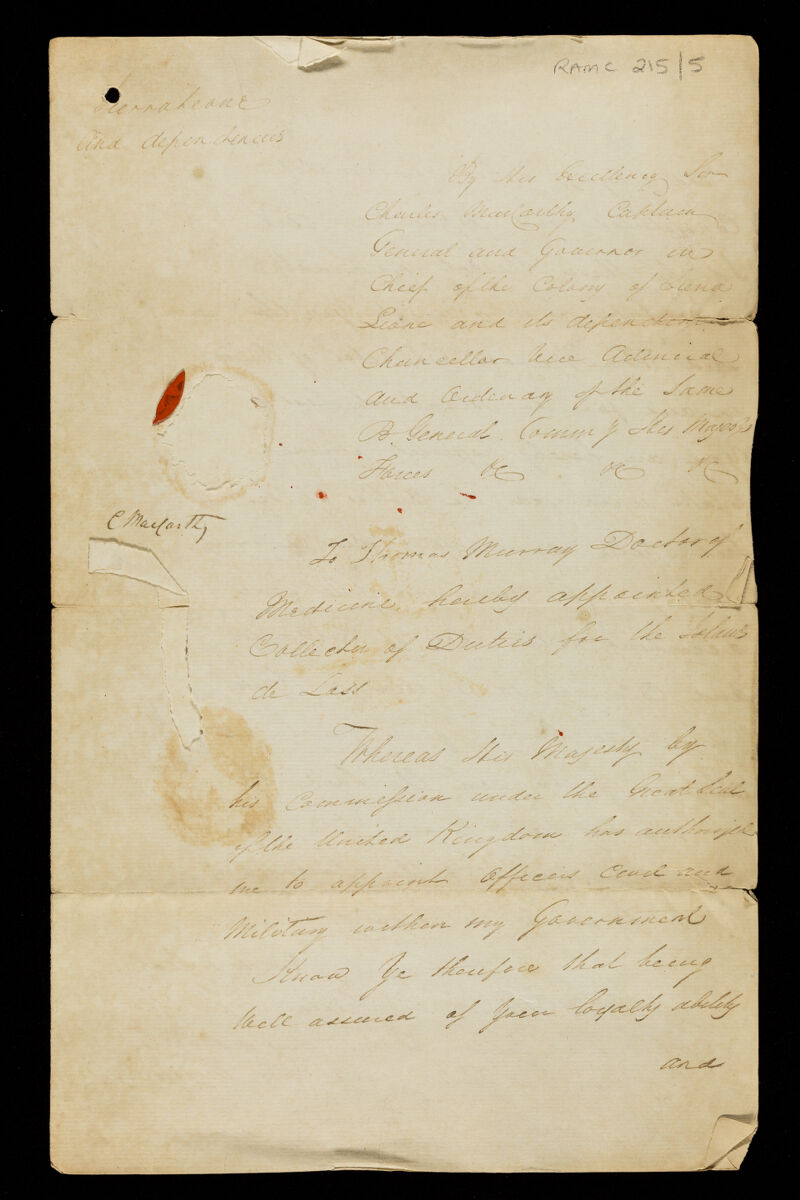 RAMC 215/5
Sierra Leone
And dependencies
By His Excellency Sir
Charles MacCarthy Captain
General and Governor in
Chief of the Colony of Sierra
Leone and its dependencies
Chancellor Vice Admiral
and Ordinary of the Same
B. General Comm'g His Majesty's
Forces &c &c &c
C MacCarthy
To Thomas Murray Doctor of
Medicine, hereby appointed
Collector of Duties for the
de Loss
Whereas His Majesty by
his Commission under the Great Seal
of the United Kingdom has authorized
me to appoint Officers Civil and
Military within my Government
Know Ye therefore that being
Well assured of your loyalty ability
and